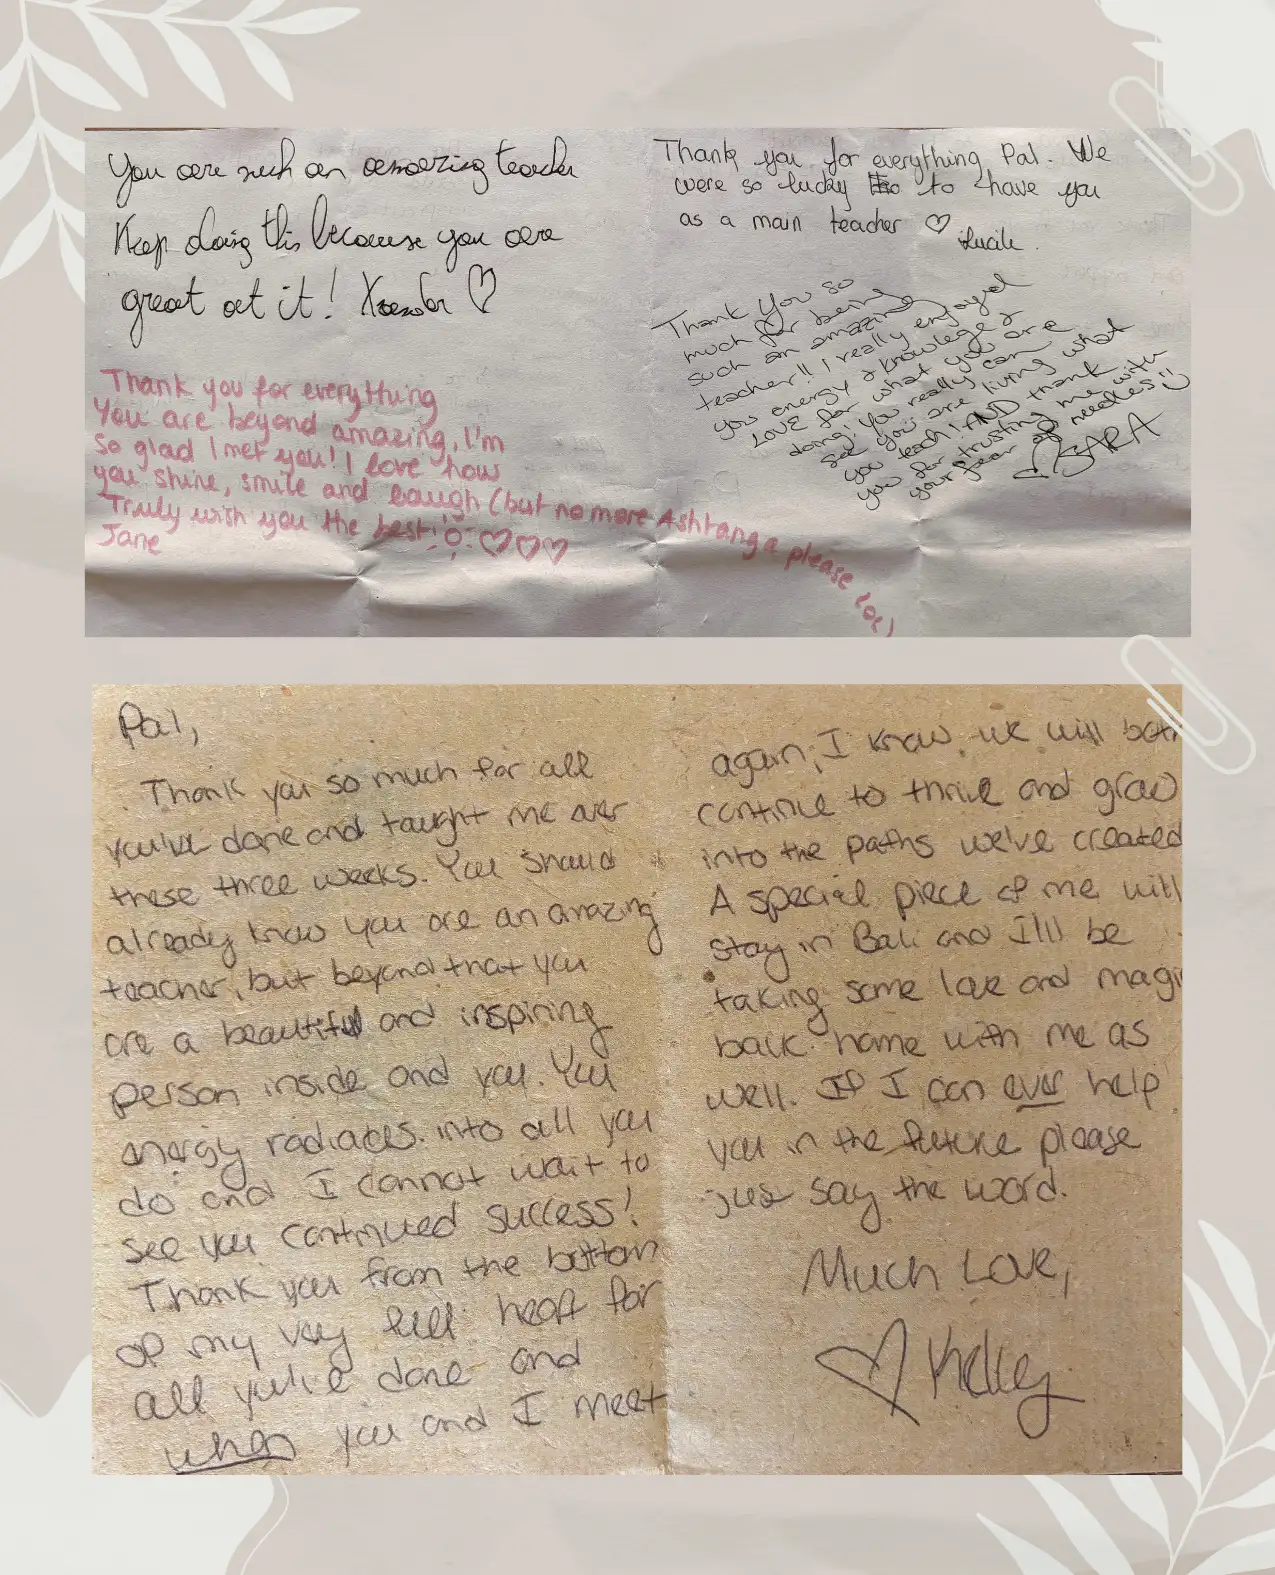 You are such an amazing teacher
Keep doing this because you are
great at it!
Thank you for everything
You are beyond amazing, I'm
so glad I met you! I love how
you shine, smile and laugh (but no more Ashtanga please lol)
Truly with you the best!
Jane
Thank you for everything Pal. We
were so lucky to have you
as a main teacher
Lucile.
Thank You so
much for being
such an amazing
teacher!! I really enjoyed
you energy & knowlege &
LOVE for what you are
doing! You really can
see you are living what
you teach! AND thank
you for trusting me with
your fear of needles
SARA
Pal,
Thank you so much for all
you've done and taught me over
these three weeks. You should
already know you are an amazing
teacher, but beyond that you
are a beautiful and inspiring
person inside and you. You
energy radiates into all you
do and I cannot wait to
see you continued success!
Thank you from the bottom
of my very full heart for
all you've done and
when you and I meet
again, I know we will both
continue to thrive and grow
into the paths we've created
A special piece of me will
stay in Bali and I'll be
taking some love and magi
back home with me as
well. If I can ever help
you in the future please
just say the word.
Much Love,
Kelley